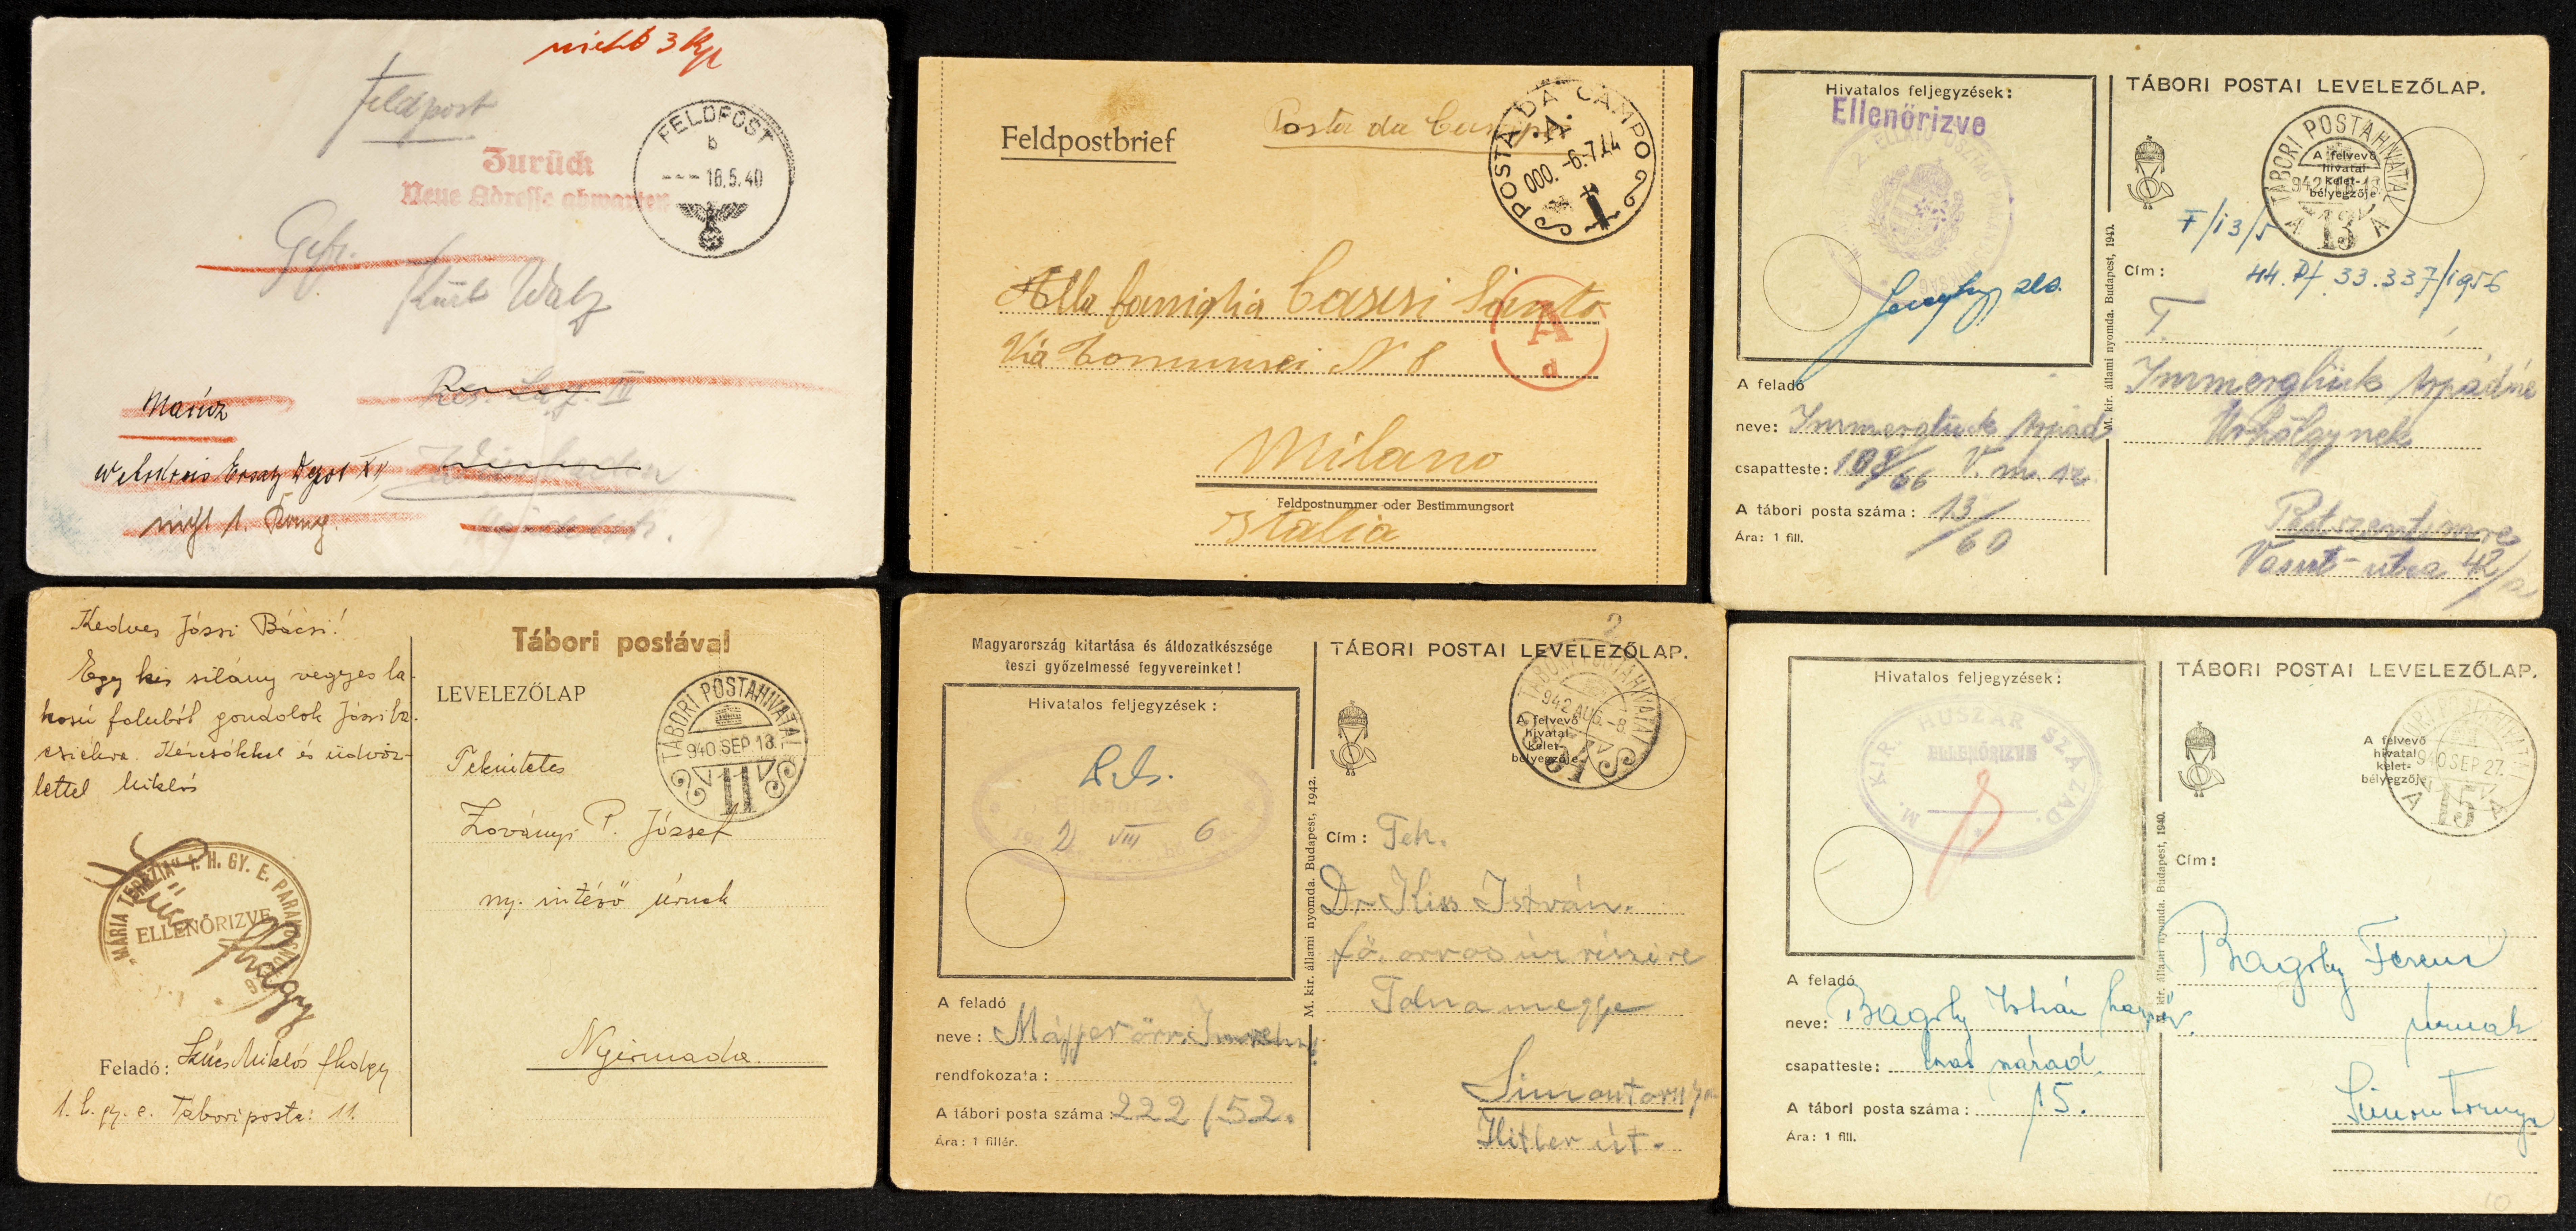 nicht 3 Kp
Feldpost
FELDPOST
b
--- 16.5.40
Zurück
Neue Adresse abwarten
Gefr.
Kurt Walz
Res. Laz. III
Mainz
Wehrkreis Ersatz Depot XII
nicht 1. Komp.
Feldpostbrief
Posta da Campo
POSTA DA CAMPO
A.
000. -6.7.44
Alla famiglia Casisi Santo
A
d
Via Comunsei N 8
Milano
Feldpostnummer oder Bestimmungsort
Italia
Hivatalos feljegyzések:
Ellenőrizve
TÁBORI POSTAI LEVELEZŐLAP.
TÁBORI POSTAHIVATAL
A felvevő
hivatal
kelet-
bélyegzője
942
A 13 A
F/13/5
Cím:
44. Pf 33.337/1956
T.
Immerglück Árpádné
Úrhölgynek
Pestszentimre
Vasút-utca 42/a
M. kir. állami nyomda. Budapest, 1940.
A feladó
neve: Immerglück Árpád
csapatteste: 108/66 V. m. sz.
A tábori posta száma: 13/60
Ára: 1 fill.
Kedves Józsi Bácsi!
Egy kis silány vegyes la-
kosú faluból gondolok Józsi bá-
csiékra. Kézcsókkal és üdvöz-
lettel Miklós
"MÁRIA TERÉZIA" 1. H. GY. E. PARANCSNOKSÁG
ELLENŐRIZVE
Szücs
fhdgy
Feladó: Szücs Miklós fhdgy
1. h. gy. e. Tábori posta: 11.
Tábori postával
LEVELEZŐLAP
TÁBORI POSTAHIVATAL
940 SEP. 13.
11
Tekintetes
Zoványi P. József
ny. intéző úrnak
Nyirmada
Magyarország kitartása és áldozatkészsége
teszi győzelmessé fegyvereinket!
Hivatalos feljegyzések:
Ellenőrizve
2 VIII 6
A feladó
neve: Májjer őrv. Imre
rendfokozata:
A tábori posta száma: 222/52.
Ára: 1 fillér.
M. kir. állami nyomda. Budapest, 1942.
2
TÁBORI POSTAI LEVELEZŐLAP.
TÁBORI POSTAHIVATAL
942 AUG. -8.
A felvevő
hivatal
kelet-
bélyegzője
51
Cím: Tek.
Dr Kiss István.
fő. orvos úr részére
Tolna megye
Simontornya
Hitler út.
Hivatalos feljegyzések:
M. KIR. HUSZÁR SZÁZAD.
ELLENŐRIZVE
A feladó
neve: Bagoly István
csapatteste: husz. század.
A tábori posta száma: 15.
Ára: 1 fill.
M. kir. állami nyomda. Budapest, 1940.
TÁBORI POSTAI LEVELEZŐLAP.
TÁBORI POSTAHIVATAL
A felvevő
hivatal
kelet-
bélyegzője
940 SEP. 27.
A 15 A
Cím:
Bagoly Ferenc
úrnak
Simontornya
10